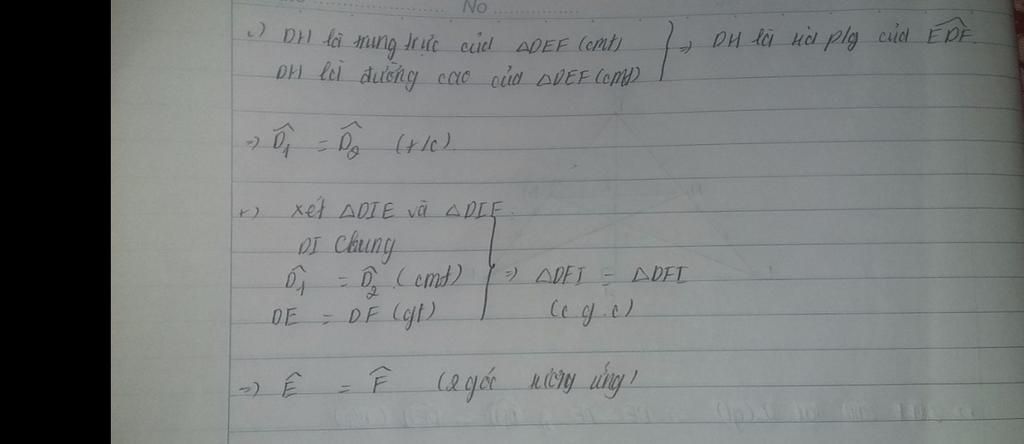 No
c) DH là trung trực của △DEF (cmt)
DH là đường cao của △DEF (cmt)
⇒ DH là tia p/g của \widehat{EDF}
⇒ \widehat{D}₁ = \widehat{D}₂ (t/c)
+) Xét △DIE và △DIF
DI chung
\widehat{D}₁ = \widehat{D}₂ (cmt)
DE = DF (gt)
⇒ △DEI = △DFI
(c g.c)
⇒ \widehat{E} = \widehat{F} (2 góc tương ứng)